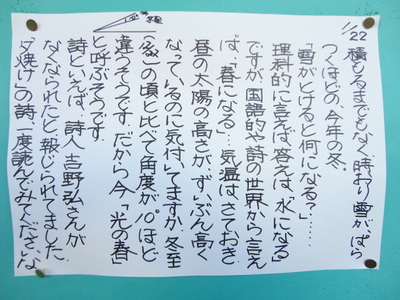 1/22
積もるまでもなく、時おり雪がぱら
つくほどの、今年の冬。
「雪がとけると何になる?」……
理科的に言えば、答えは「水になる」
ですが、国語的な詩の世界から言え
ば、「春になる」…気温はさておき、
昼の太陽の高さが、ずいぶん高く
なっているのに気付いてますか。冬至
の頃と比べて角度が10°ほど
違うそうです。だから今「光の春」
と呼ぶそうです。
詩といえば、詩人 吉野弘さんが
なくなられたと報じられてました。
「夕焼け」の詩、一度読んでみてくださいな